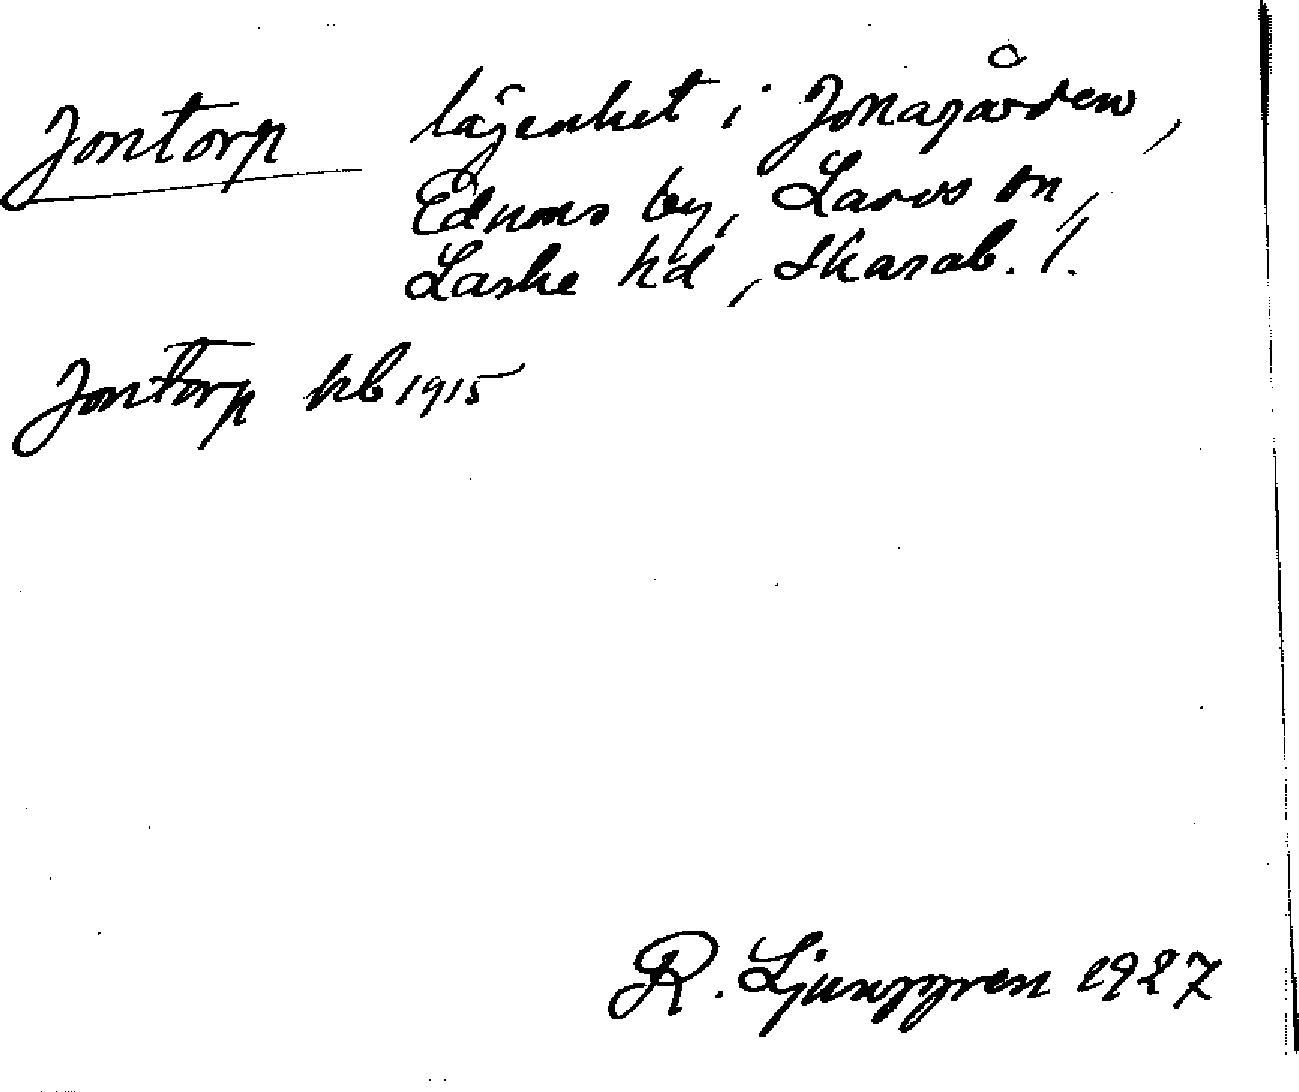 Jontorp lägenhet i Jonagården,
Ednons by, Larvs sn,
Laske hd, Skarab. l.
Jontorp kb 1915
R. Ljunggren 1927